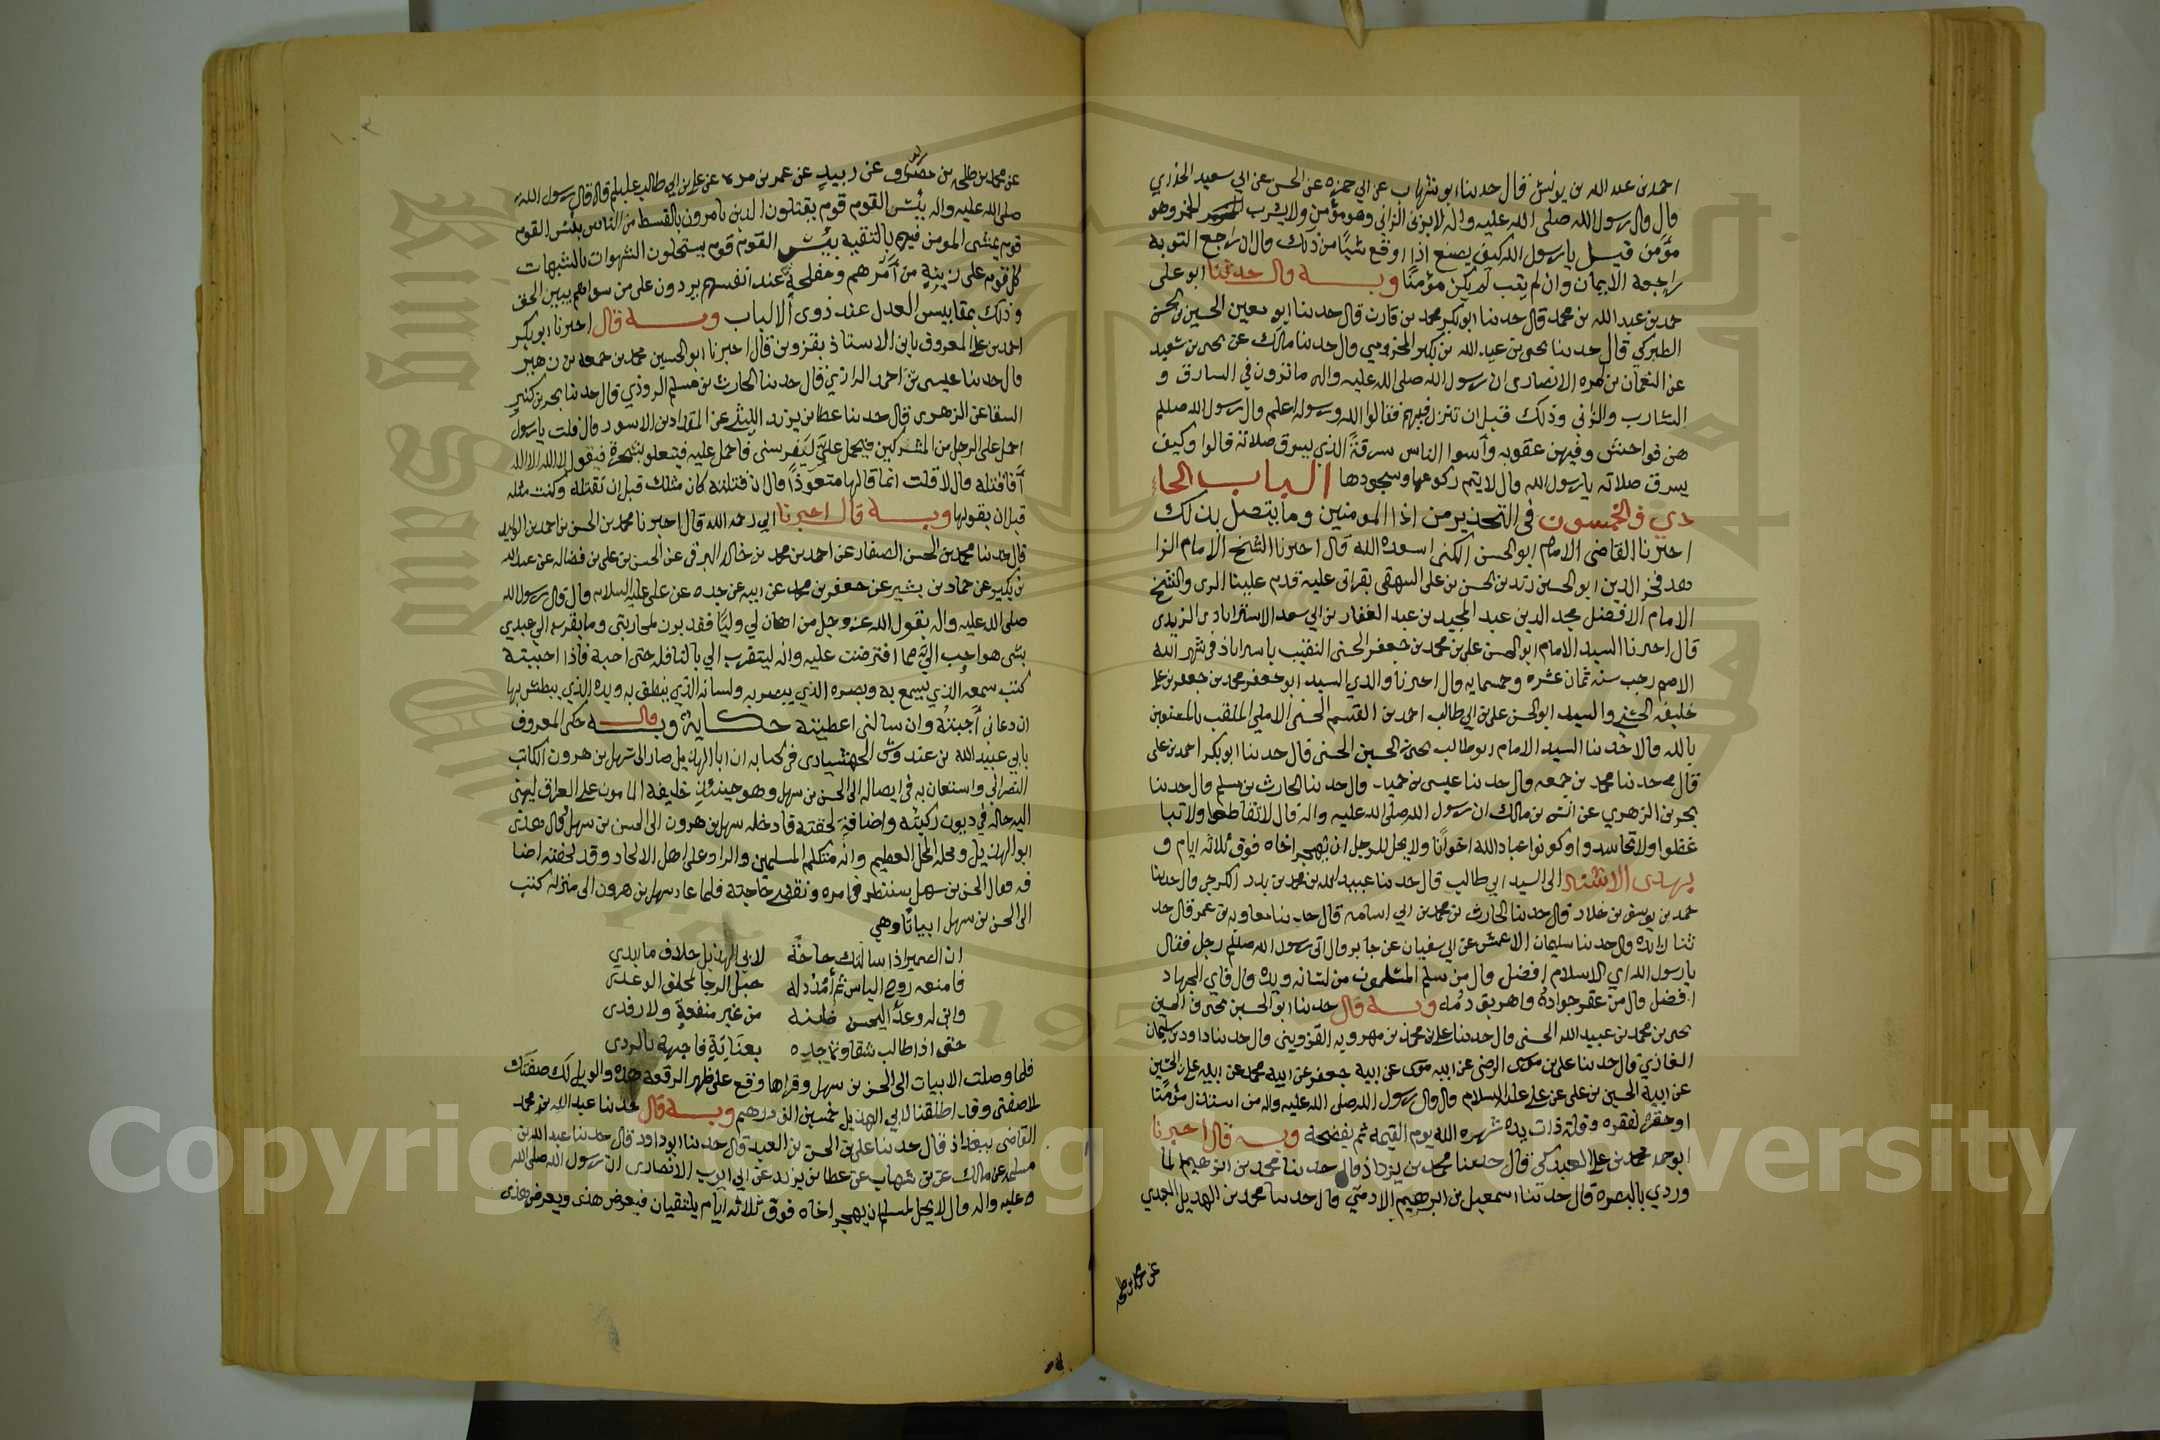 احمد بن عبد الله بن يونس قال حدثنا ابو شهاب عن ابي حمزه عن الحسن عن ابي سعيد الخدري
قال قال رسول الله صلى الله عليه واله لا يزني الزاني وهو مؤمن ولا يشرب الخمر وهو
مؤمن قيل يا رسول الله كيف يصنع اذا اوقع شيئا من ذلك قال ان راجع التوبه
راجعه الايمان وان لم يتب لم يكن مؤمنا وبه قال حدثنا ابو علي
حمد بن عبد الله بن محمد قال حدثنا ابو بكر محمد بن قارن قال حدثنا ابو معين الحسين بن الحسن
الطبركي قال حدثنا يحيى بن عبد الله بن بكير المخزومي قال حدثنا مالك عن يحيى بن سعيد
عن النعمان بن مره الانصارى ان رسول الله صلى الله عليه واله ما ترون في السارق و
الشارب والزاني وذلك قبل ان تنزل فيهم فقالوا الله ورسوله اعلم قال رسول الله صلعم
هن فواحش وفيهن عقوبه وأسوا الناس سرقة الذي يسرق صلاته قالوا وكيف
يسرق صلاته يا رسول الله قال لا يتم ركوعها وسجودها الباب الحا
دي والخمسون في التحذير من اذا المومنين وما يتصل بذلك
اخبرنا القاضي الامام ابو الحسن الكنى اسعده الله قال اخبرنا الشيخ الامام الزا
هد فخر الدين ابو الحسين زيد بن الحسن بن على البيهقي بقراتى عليه قدم علينا الرى والشيخ
الامام الافضل مجد الدين عبد المجيد بن عبد الغفار بن ابي سعد الاستراباذى الزيدى
قال اخبرنا السيد الامام ابو الحسن على بن محمد بن جعفر الحسني النقيب باستراباذ في شهر الله
الاصم رجب سنه ثمان عشره وخمسمايه قال اخبرنا والدي السيد ابو جعفر محمد بن جعفر بن علي
خليفه الحسني والسيد ابو الحسن على بن ابي طالب احمد بن القسم الحسني الاملي الملقب بالمستعين
بالله قالا حدثنا السيد الامام ابو طالب يحيى بن الحسين الحسني قال حدثنا ابو بكر احمد بن على
قال حدثنا محمد بن جمعه قال حدثنا عيسى بن حميد قال حدثنا الحارث بن مسلم قال حدثنا
بحر بن الزهري عن انس بن مالك ان رسول الله صلى الله عليه واله قال لا تقاطعوا ولا تبا
غظوا ولا تحاسدوا وكونوا عباد الله اخوانا ولا يحل للرجل ان يهجر اخاه فوق ثلاثه ايام و
بهذى الاسناد الى السيد ابي طالب قال حدثنا عبيد الله بن محمد بن بدر الكرخى قال حدثنا
حمد بن يوسف بن خلاد قال حدثنا الحارث بن محمد بن ابي اسامه قال حدثنا معاويه بن عمر قال حد
ثنا زايده قال حدثنا سليمان الاعمش عن ابي سفيان عن جابر قال اتى رسول الله صلعم رجل فقال
يا رسول الله اي الاسلام افضل قال من سلم المسلمون من لسانه ويده قال فاي الجهاد
افضل قال من عقر جواده واهريق دمه وبه قال حدثنا ابو الحسين يحيى بن الحسين
يحيى بن محمد بن عبيد الله الحسني قال حدثنا على بن محمد بن مهرويه القزويني قال حدثنا داود بن سليمان
الغازي قال حدثنا على بن موسى الرضى عن ابيه موسى عن ابيه جعفر عن ابيه محمد عن ابيه على بن الحسين
عن ابيه الحسين بن على عن علي عليه السلام قال قال رسول الله صلى الله عليه واله من استذل مؤمنا
او حقره لفقره وقلة ذات يده شهره الله يوم القيمه ثم يفضحه وبه قال اخبرنا
ابو حمد محمد بن علي العبدكي قال حدثنا محمد بن يزداذ قال حدثنا محمد بن ابرهيم الما
وردي بالبصره قال حدثنا اسمعيل بن ابرهيم الادمي قال حدثنا محمد بن الهذيل النجدي
عن محمد بن طلحه
عن محمد بن طلحه بن مصرف عن زبيد عن عمر بن مره عن علي بن ابي طالب عليه السلم قال قال رسول الله
صلى الله عليه واله بئس القوم قوم يقتلون الذين يامرون بالقسط من الناس بئس القوم
قوم يمشى المومن فيهم بالتقيه بئس القوم قوم يستحلون الشهوات بالشبهات
كل قوم على زينة من أمرهم ومفلحة عند انفسهم يردون على من سواهم يبين الحق
وذلك بمقاييس العدل عند ذوى الالباب وبه قال اخبرنا ابو بكر
احمد بن علي المعروف بابن الاستاذ بقزوين قال اخبرنا ابو الحسين محمد بن جمعه بن زهير
قال حدثنا عيسى بن احمد الرازي قال حدثنا الحارث بن مسلم الروذي قال حدثنا بحر بن كنيز
السقا عن الزهرى قال حدثنا عطا بن يزيد الليثي عن المقداد بن الاسود قال قلت يا رسول
احمل على الرجل من المشركين فيحمل علي فيفرسنى فاحمل عليه فيتعلق بشجرة فيقول لا اله الا الله
أفاقتله قال لا قلت انما قالها متعوذا قال ان قتلته كان مثلك قبل ان تقتله وكنت مثله
قبل ان يقولها وبه قال اخبرنا ابي رحمه الله قال اخبرنا محمد بن الحسن بن احمد بن الوليد
قال حدثنا محمد بن الحسن الصفار عن احمد بن محمد بن خالد البرقى عن الحسن بن على بن فضاله عن عبد الله
بن بكير عن حماد بن بشير عن جعفر بن محمد عن ابيه عن جده عن على عليه السلام قال قال رسول الله
صلى الله عليه واله يقول الله عز وجل من اهان لي وليا فقد برز لمحاربتى وما يقرب الي عبدي
بشى هو احب الي مما افترضت عليه وانه ليتقرب الي بالنافله حتى احبه فاذا احببته
كنت سمعه الذي يسمع به وبصره الذي يبصر به ولسانه الذي ينطق به ويده الذي يبطش بها
ان دعانى أجبته وان سالنى اعطيته حكاية وبه قال حكى المعروف
بابي عبد الله بن عبدوس الجهشيارى في كتابه ان ابا الهذيل صار الى سهل بن هرون الكاتب
النصراني واستعان به في ايصاله الى الحسن بن سهل وهو حينئذ خليفه المامون على العراق لينهى
اليه حاله في ديون ركبته واضاقة لحقته فادخله سهل بن هرون الى الحسن بن سهل وقال هذى
ابو الهذيل ومحله المحل العظيم وانه متكلم المسلمين والراد على اهل الالحاد وقد لحقته اضا
قه فقال الحسن بن سهل سننظر في امره ونقضي حاجته فلما عاد سهل بن هرون الى منزله كتب
الى الحسن بن سهل ابياتا وهي
ان الضمير اذا سالتك حاجة لابي الهذيل خلاف ما ابدي
فامنعه روح الياس ثم أمدد له حبل الرجا لمخلف الوعد
والن له وعد اليحسن ظنه من غير منفعة ولا رفد
حتى اذا طالب شقاوة جده بعناية فاجبهه بالرد
فلما وصلت الابيات الى الحسن بن سهل وقراها وقع على ظهر الرقعه هذه والويل لك صفتك
لا صفتي وقد اطلقنا لابي الهذيل خمسين الف درهم وبه قال حدثنا عبد الله بن محمد
القاضى ببغداذ قال حدثنا على بن الحسن بن العبد قال حدثنا ابو داود قال حدثنا عبد الله بن
مسلمه عن مالك عن بن شهاب عن عطا بن يزيد عن ابي ايوب الانصارى ان رسول الله صلى الله
عليه واله قال لا يحل لمسلم ان يهجر اخاه فوق ثلاثه ايام يلتقيان فيعرض هذى ويعرض هذى
Copyright © King Saud University
King Saud University
1957